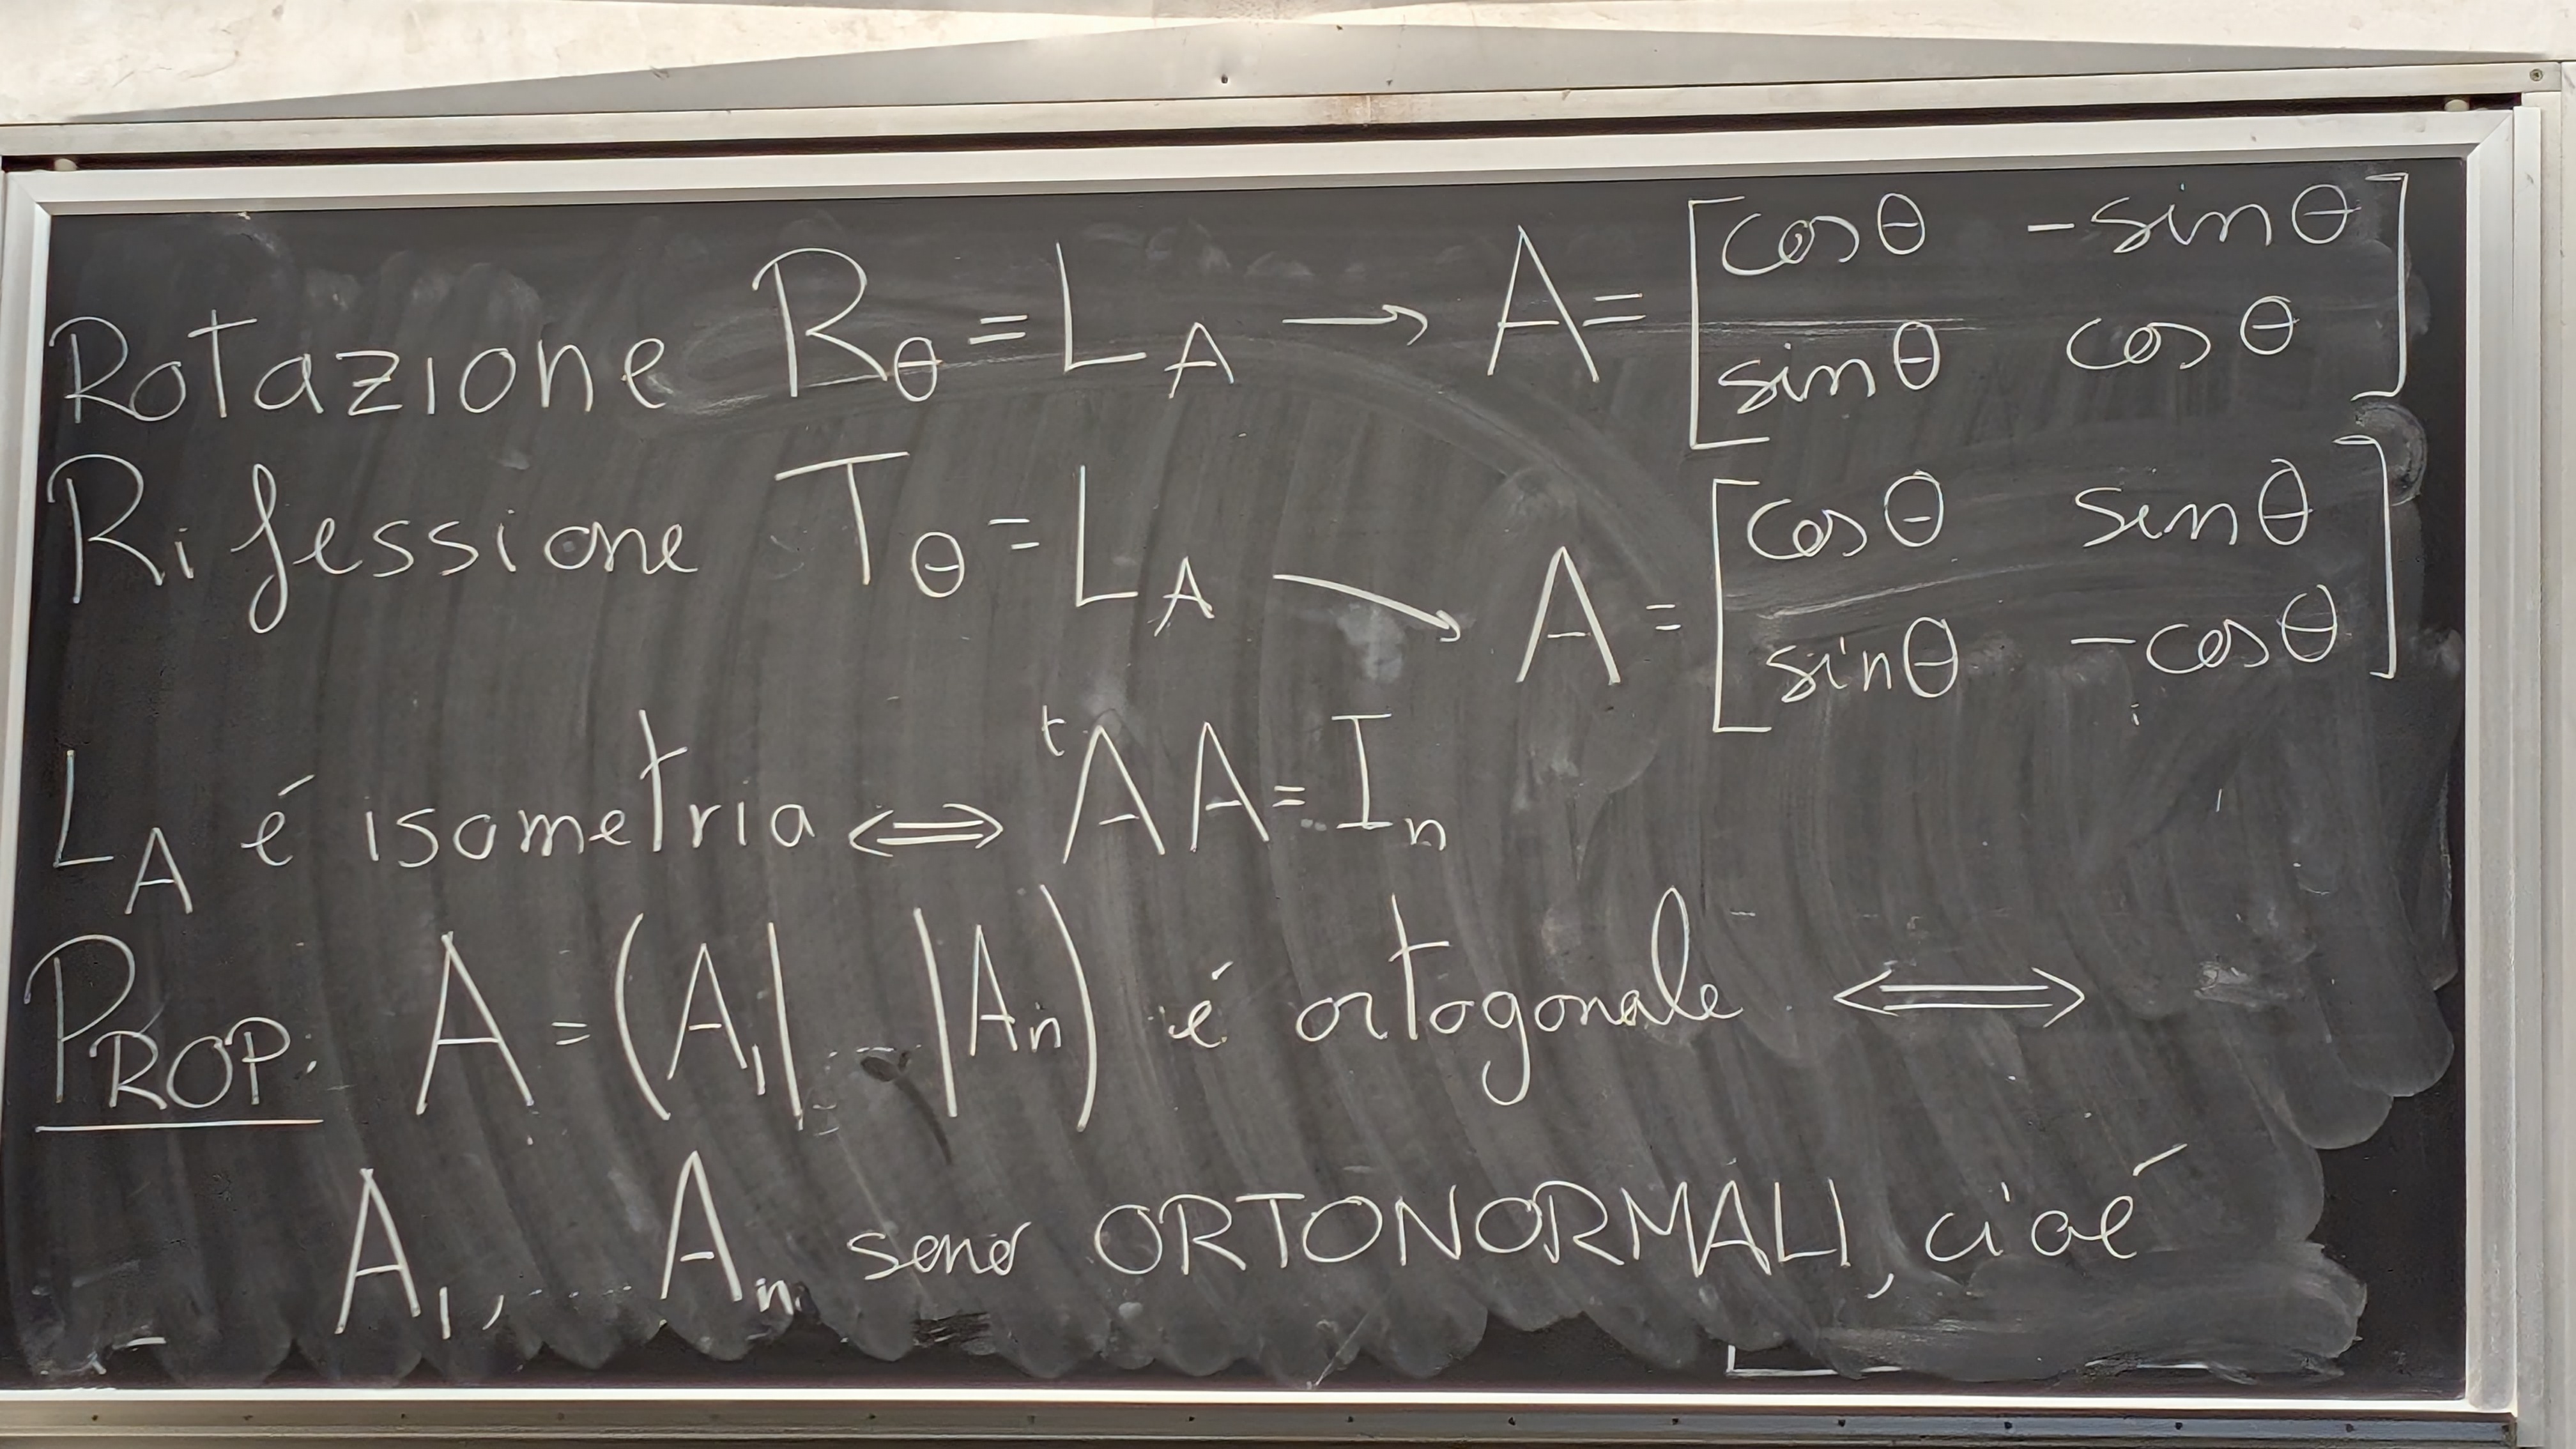 Rotazione R_θ = L_A → A = [cosθ -sinθ
sinθ cosθ]
Rifessione T_θ = L_A → A = [cosθ sinθ
sinθ -cosθ]
L_A é isometria ⟺ ᵗA A = I_n
PROP. A = (A_1| ... |A_n) é ortogonale ⟺
A_1, ... A_n sono ORTONORMALI, cioé